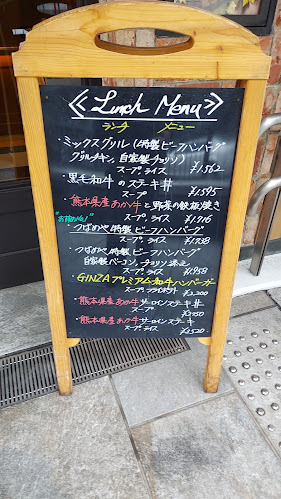 ≪ Lunch Menu ≫
ランチ メニュー
・ミックスグリル(特製ビーフハンバーグ
グリルチキン, 自家製チョリソ)
スープ ライス ¥1,562
・黒毛和牛のステキ丼
スープ ¥1,595
・熊本県産あか牛と野菜の鉄板焼き
"お薦めNo1" スープ, ライス ¥1,716
・つばめや特製ビーフハンバーグ
スープ ライス ¥1,738
・つばめや特製ビーフハンバーグ
自家製ベーコン, チョリソ
スープ ライス ¥1,958
・GINZAプレミアム和牛ハンバーガー
スープ, フライポテト ¥2,200
・熊本県産あか牛サーロインステーキ丼
スープ
・熊本県産あか牛サーロインステーキ
スープ ライス ¥2,520